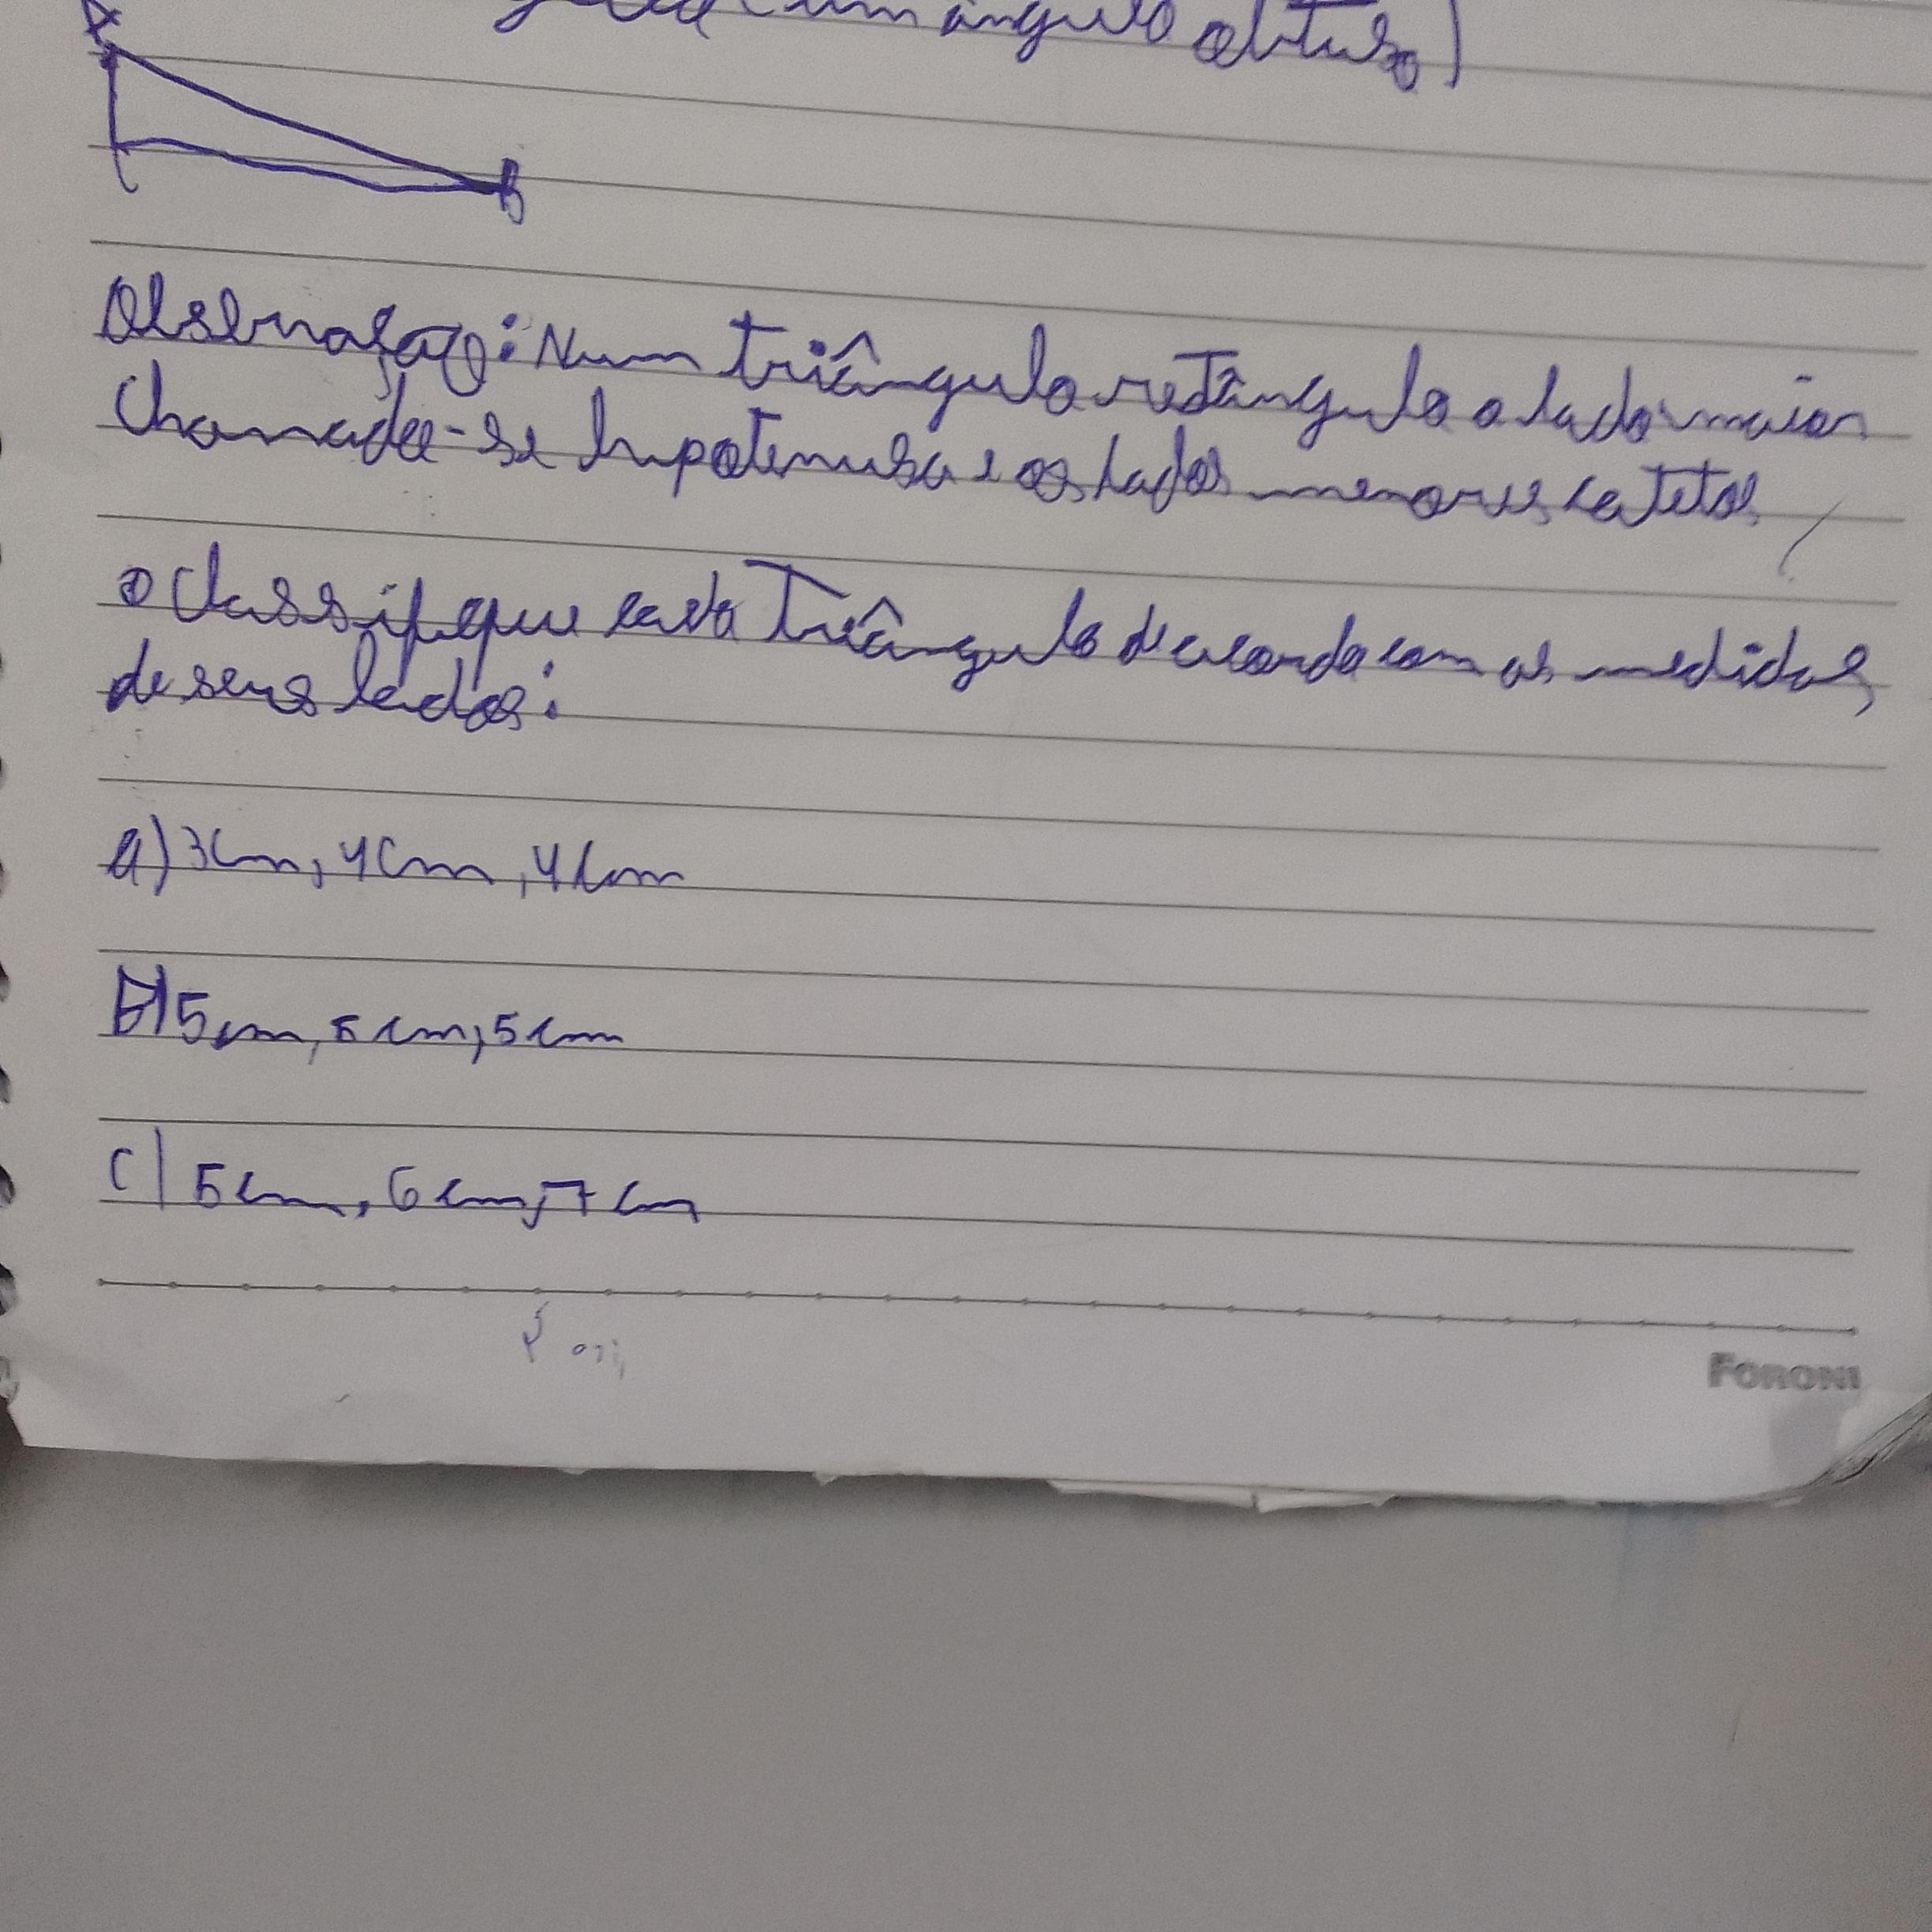 A
um ângulo obtuso)
C
B
Observação: Num triângulo retângulo o lado maior
Chamada-se hipotenusa e os lados menores catetos
Classifique cada Triângulo de acordo com as medidas
de seus lados:
a) 3cm, 4cm, 4cm
B) 5cm, 5cm, 5cm
C) 5cm, 6cm, 7cm
FORONI